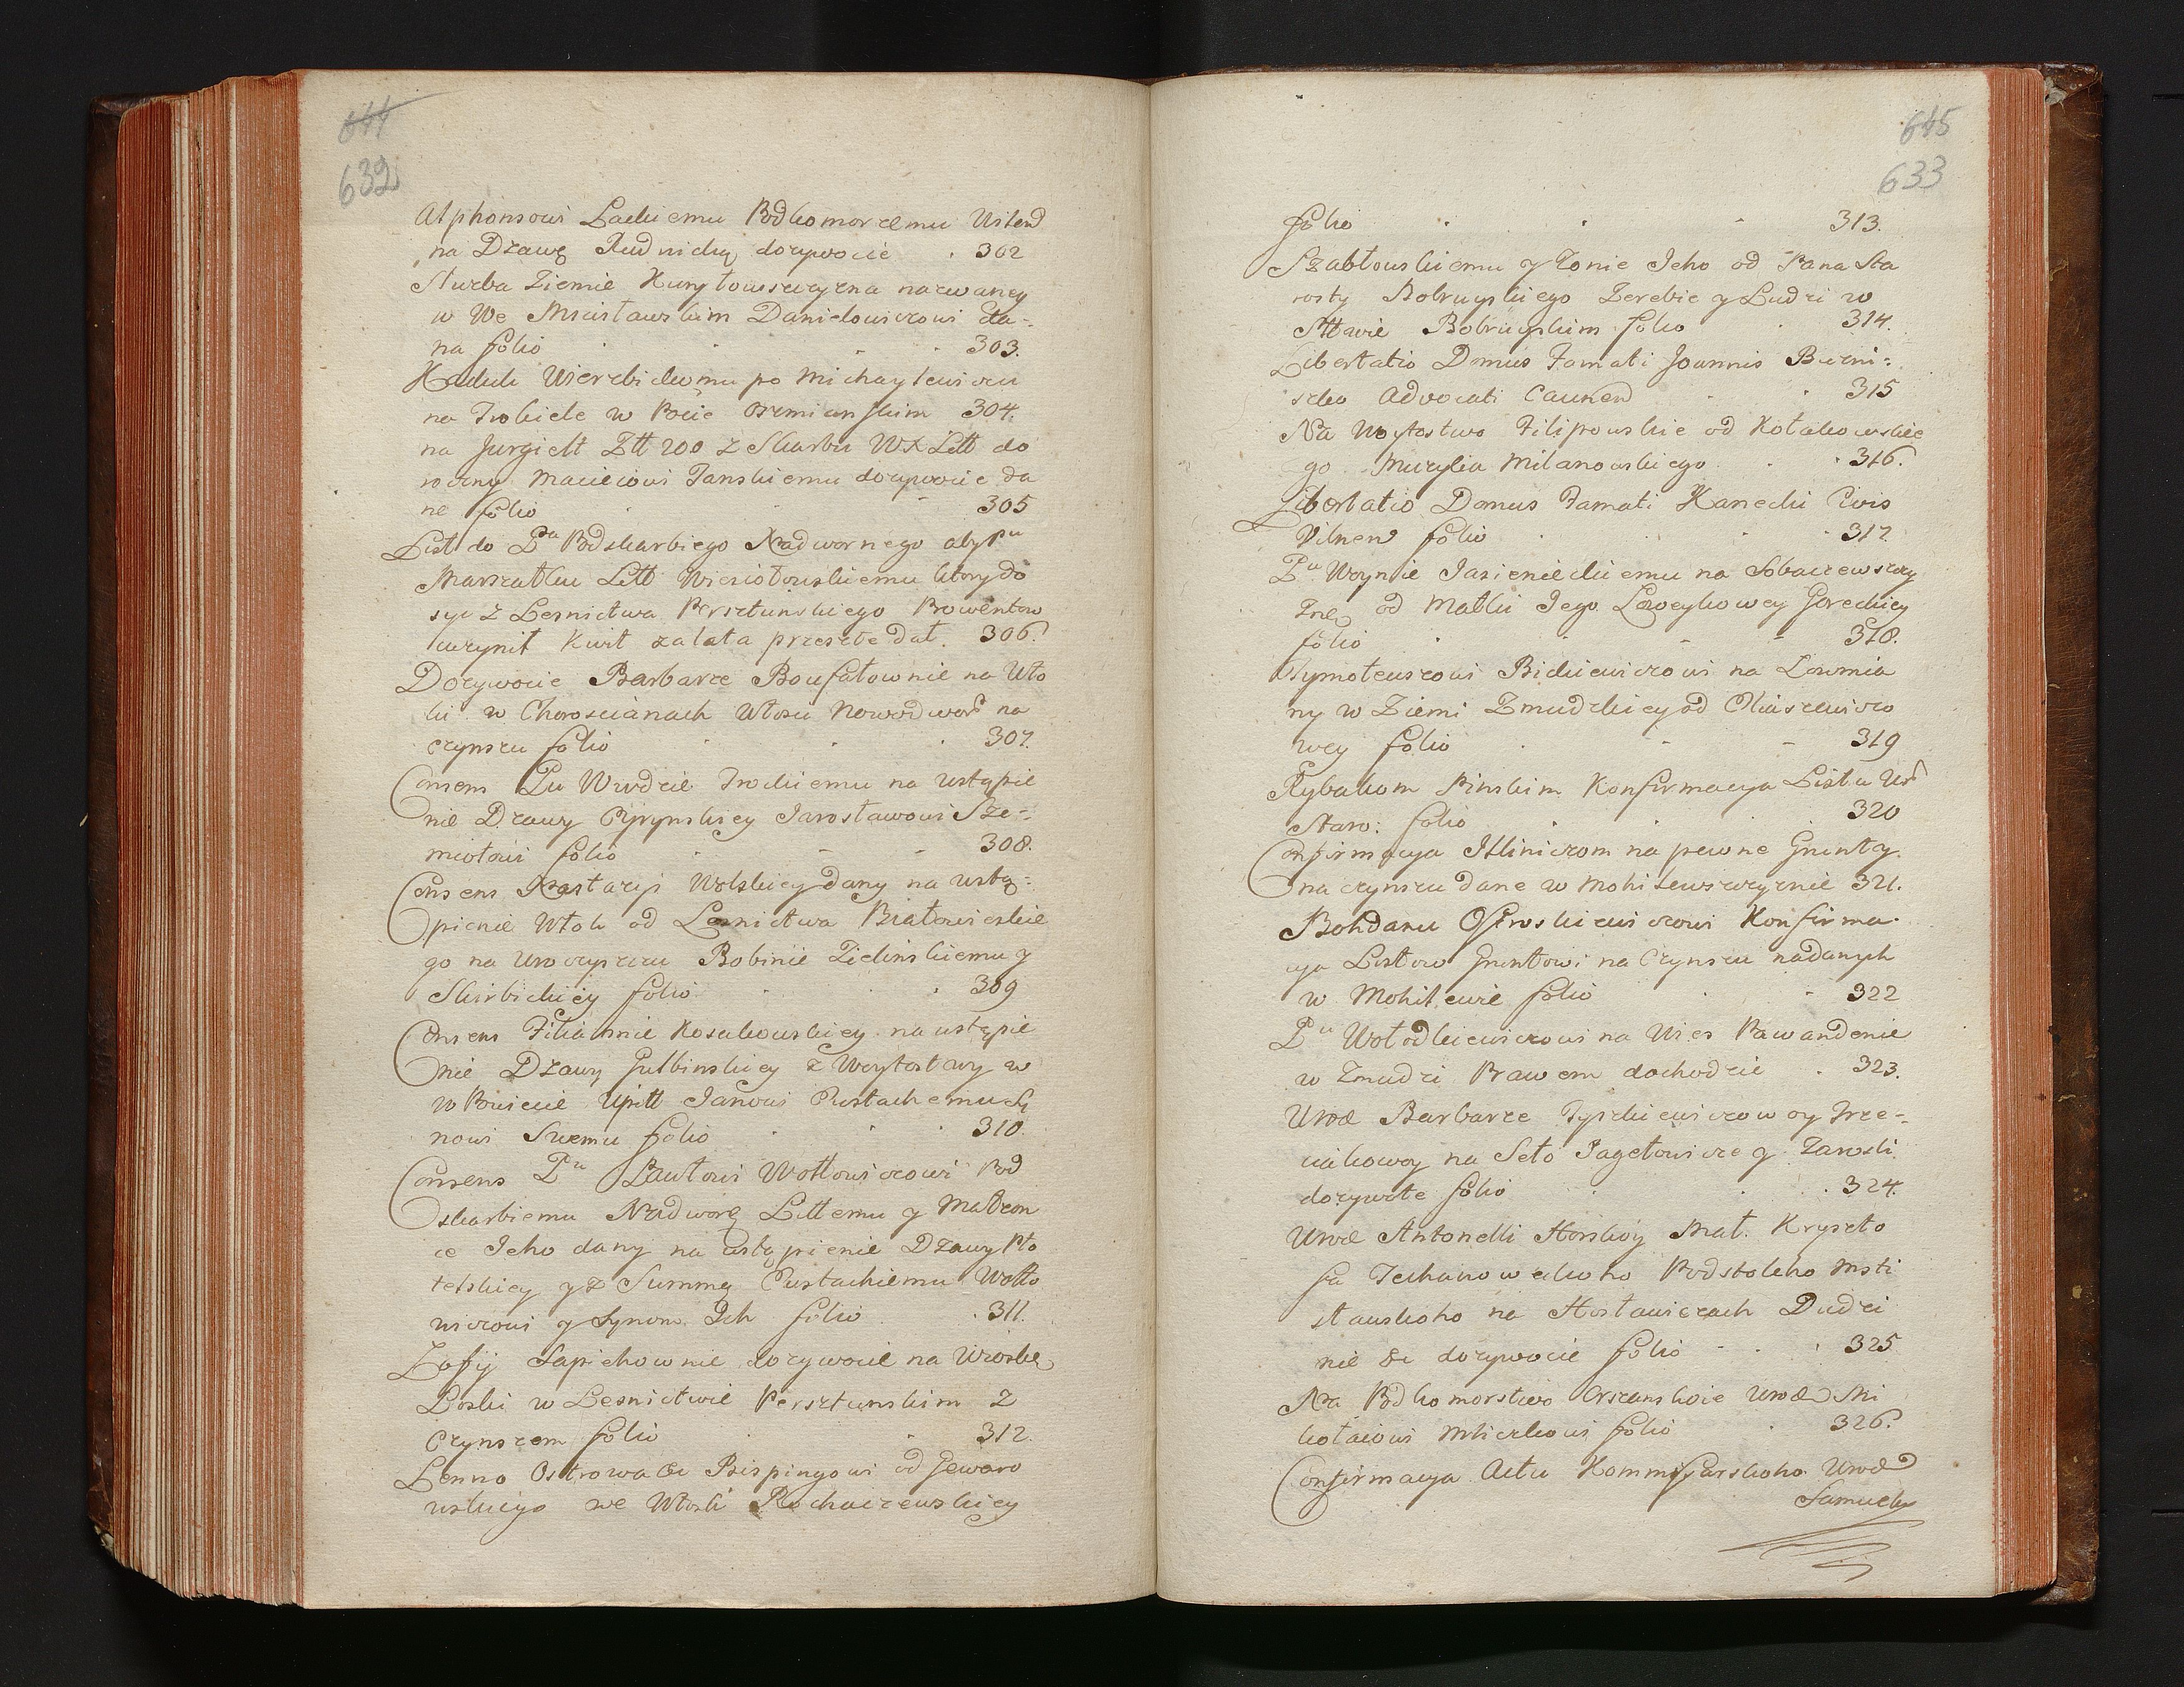 644
632
Alphonsowi Lackiemu Podkomorzemu Wilend
na Dzawę Rudnicką dozywocie 302
Służba Ziemie Kuryłowszczyzna nazwaney
w We Mscisławskim Danielowiczowi da-:
na folio 303.
Hreduli Wierzbickomu po Michayłewiczu
na w Pocie Oszmianskim 304.
na Jurgielt Ztt 200 z Skarbu WX Litt do
roczny Maciejowi Janskiemu dozywocie da
ne folio 305
List do Pa Podskarbiego Nadwornego aby Pu
Marszałku Litt Wiesiołowskiemu ktory do
syc z Lesnictwa Persztunskiego Prowentow
uczynił kwit za lata przeszłe dał. 306.
Dozywocie Barbarze Boufałownie na Wło
ki w Choroscianach Włosci Nowodwors na
czynszu folio 307.
Consens Pu Wwodzie Trockiemu na ustąpie
nie Dzawy Jarosławowi Sze-:
miotowi folio 308.
Consens Nastazji Wolskiey dany na ustą-:
pienie Włok od Lesnictwa Białowieskie
go na Uroczyszczu Bobinie Zielinskiemu y
Skirbickiey folio 309
Consens Filiannie Kosakowskiey na ustąpie
nie Dzawy Gulbinskiey z Woytostwy w
w Powiecie Upitt Janowi Eustachemu Sy
nowi Swemu folio 310.
Consens Pu Pawłowi Wołłowiczowi Pod
skarbiemu Nadworę Littemu y Małzon
ce Jeho dany na ustąpienie Dzawy Pło
telskiey y z Summą Eustachiemu Wołło
wiczowi y Synom Ich folio 311.
Zofij Sapiehownie dozywocie na Wioskę
Łoski w Lesnictwie Persztunskim z
Czynszem folio 312.
Lenno Ostrowa &c Bispingowi od Jeworo
wskiego we Włosti Rochaczewskiey
645
633
folio 313.
Szabłowskiemu y Zonie Jeho od Pana Sta
rosty Bobruyskiego Zerebie y Ludzi w
Sttwie Bobruyskim folio 314.
Libertatio Domus Famati Joannis Burni-:
szko Advocati Caunen 315
Na Woytostwo Filipowskie od Kołakowskie
go Murzyka Milanowskiego 316.
Libertatio Domus Famati Hanecki Civis
Vilnen folio 317
Pu Woynie Jasienieckiemu na Sobaczewszczy
znę od Matki Jego Lwoykowey Goreckiey
folio 318.
Tymoteuszowi Bickiewiczowi na Lowmia
ny w Ziemi Zmudzkiey od Oliaszewiczo
wey folio 319
Rybakom Pinskim Konfirmacya Listu Urd
Staro: folio 320
Confirmacya Illiniczom na pewne Grunty
na czynszu dane w Mohilewszczyznie 321.
Bohdanu Ofroskiewiczowi Konfirma-
cya Listow Gruntowi na Czynszu nadanych
w Mohilewie folio 322
Pu Wołodkiewiczowi na Wies Pawandenie
w Zmudzi Prawem dochodzie 323.
Urod Barbarze Tyszkiewiczowoy Trze-
ciakowoy na Seło Jagełowicze y Zarosli
dozywote folio 324.
Urod Antonelli Horskoy Mał. Kryszto
fa Ciechanoweckoho Podstoleho Msti
sławskoho na Hosławiczach Dudzi
nie &c dozywocie folio 325
Na Podkomorstwo Orszanskoie Urod Mi
kołaiowi Mliczkowi folio 326.
Confirmacya Actu Kommissarskoho Urod
Samuely